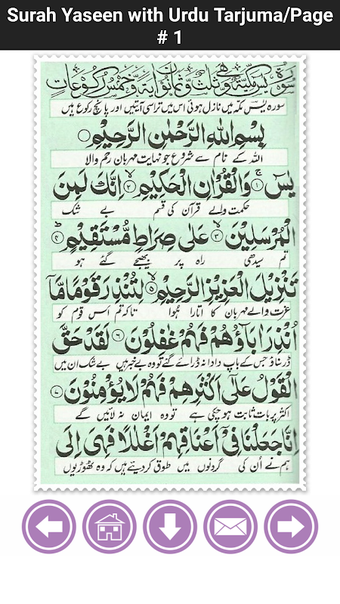 Surah Yaseen with Urdu Tarjuma/Page
# 1
سورہ یٰسٓ مکہ میں نازل ہوئی اس میں تراسی آیتیں اور پانچ رکوع ہیں
بِسْمِ اللّٰهِ الرَّحْمٰنِ الرَّحِيْمِ
اللہ کے نام سے شروع جو نہایت مہربان رحم والا
يٰسٓ ۚ﴿۱﴾ وَالْقُرْاٰنِ الْحَكِيْمِ ۙ﴿۲﴾ اِنَّكَ لَمِنَ
حکمت والے قرآن کی قسم بے شک
الْمُرْسَلِيْنَ ۙ﴿۳﴾ عَلٰى صِرَاطٍ مُّسْتَقِيْمٍ ؕ﴿۴﴾
تم سیدھی راہ پر بھیجے گئے ہو
تَنْزِيْلَ الْعَزِيْزِ الرَّحِيْمِ ۙ﴿۵﴾ لِتُنْذِرَ قَوْمًا مَّاۤ
عزت والے مہربان کا اتارا ہوا تاکہ تم اس قوم کو
اُنْذِرَ اٰبَآؤُهُمْ فَهُمْ غٰفِلُوْنَ ﴿۶﴾ لَقَدْ حَقَّ
ڈر سناؤ جس کے باپ دادا نہ ڈرائے گئے تو وہ بے خبر ہیں بے شک ان میں
الْقَوْلُ عَلٰۤى اَكْثَرِهِمْ فَهُمْ لَا يُؤْمِنُوْنَ ﴿۷﴾
اکثر پر بات ثابت ہو چکی ہے تو وہ ایمان نہ لائیں گے
اِنَّا جَعَلْنَا فِيْۤ اَعْنَاقِهِمْ اَغْلٰلًا فَهِيَ اِلَى
ہم نے ان کی گردنوں میں طوق کر دیئے ہیں کہ وہ ٹھوڑیوں